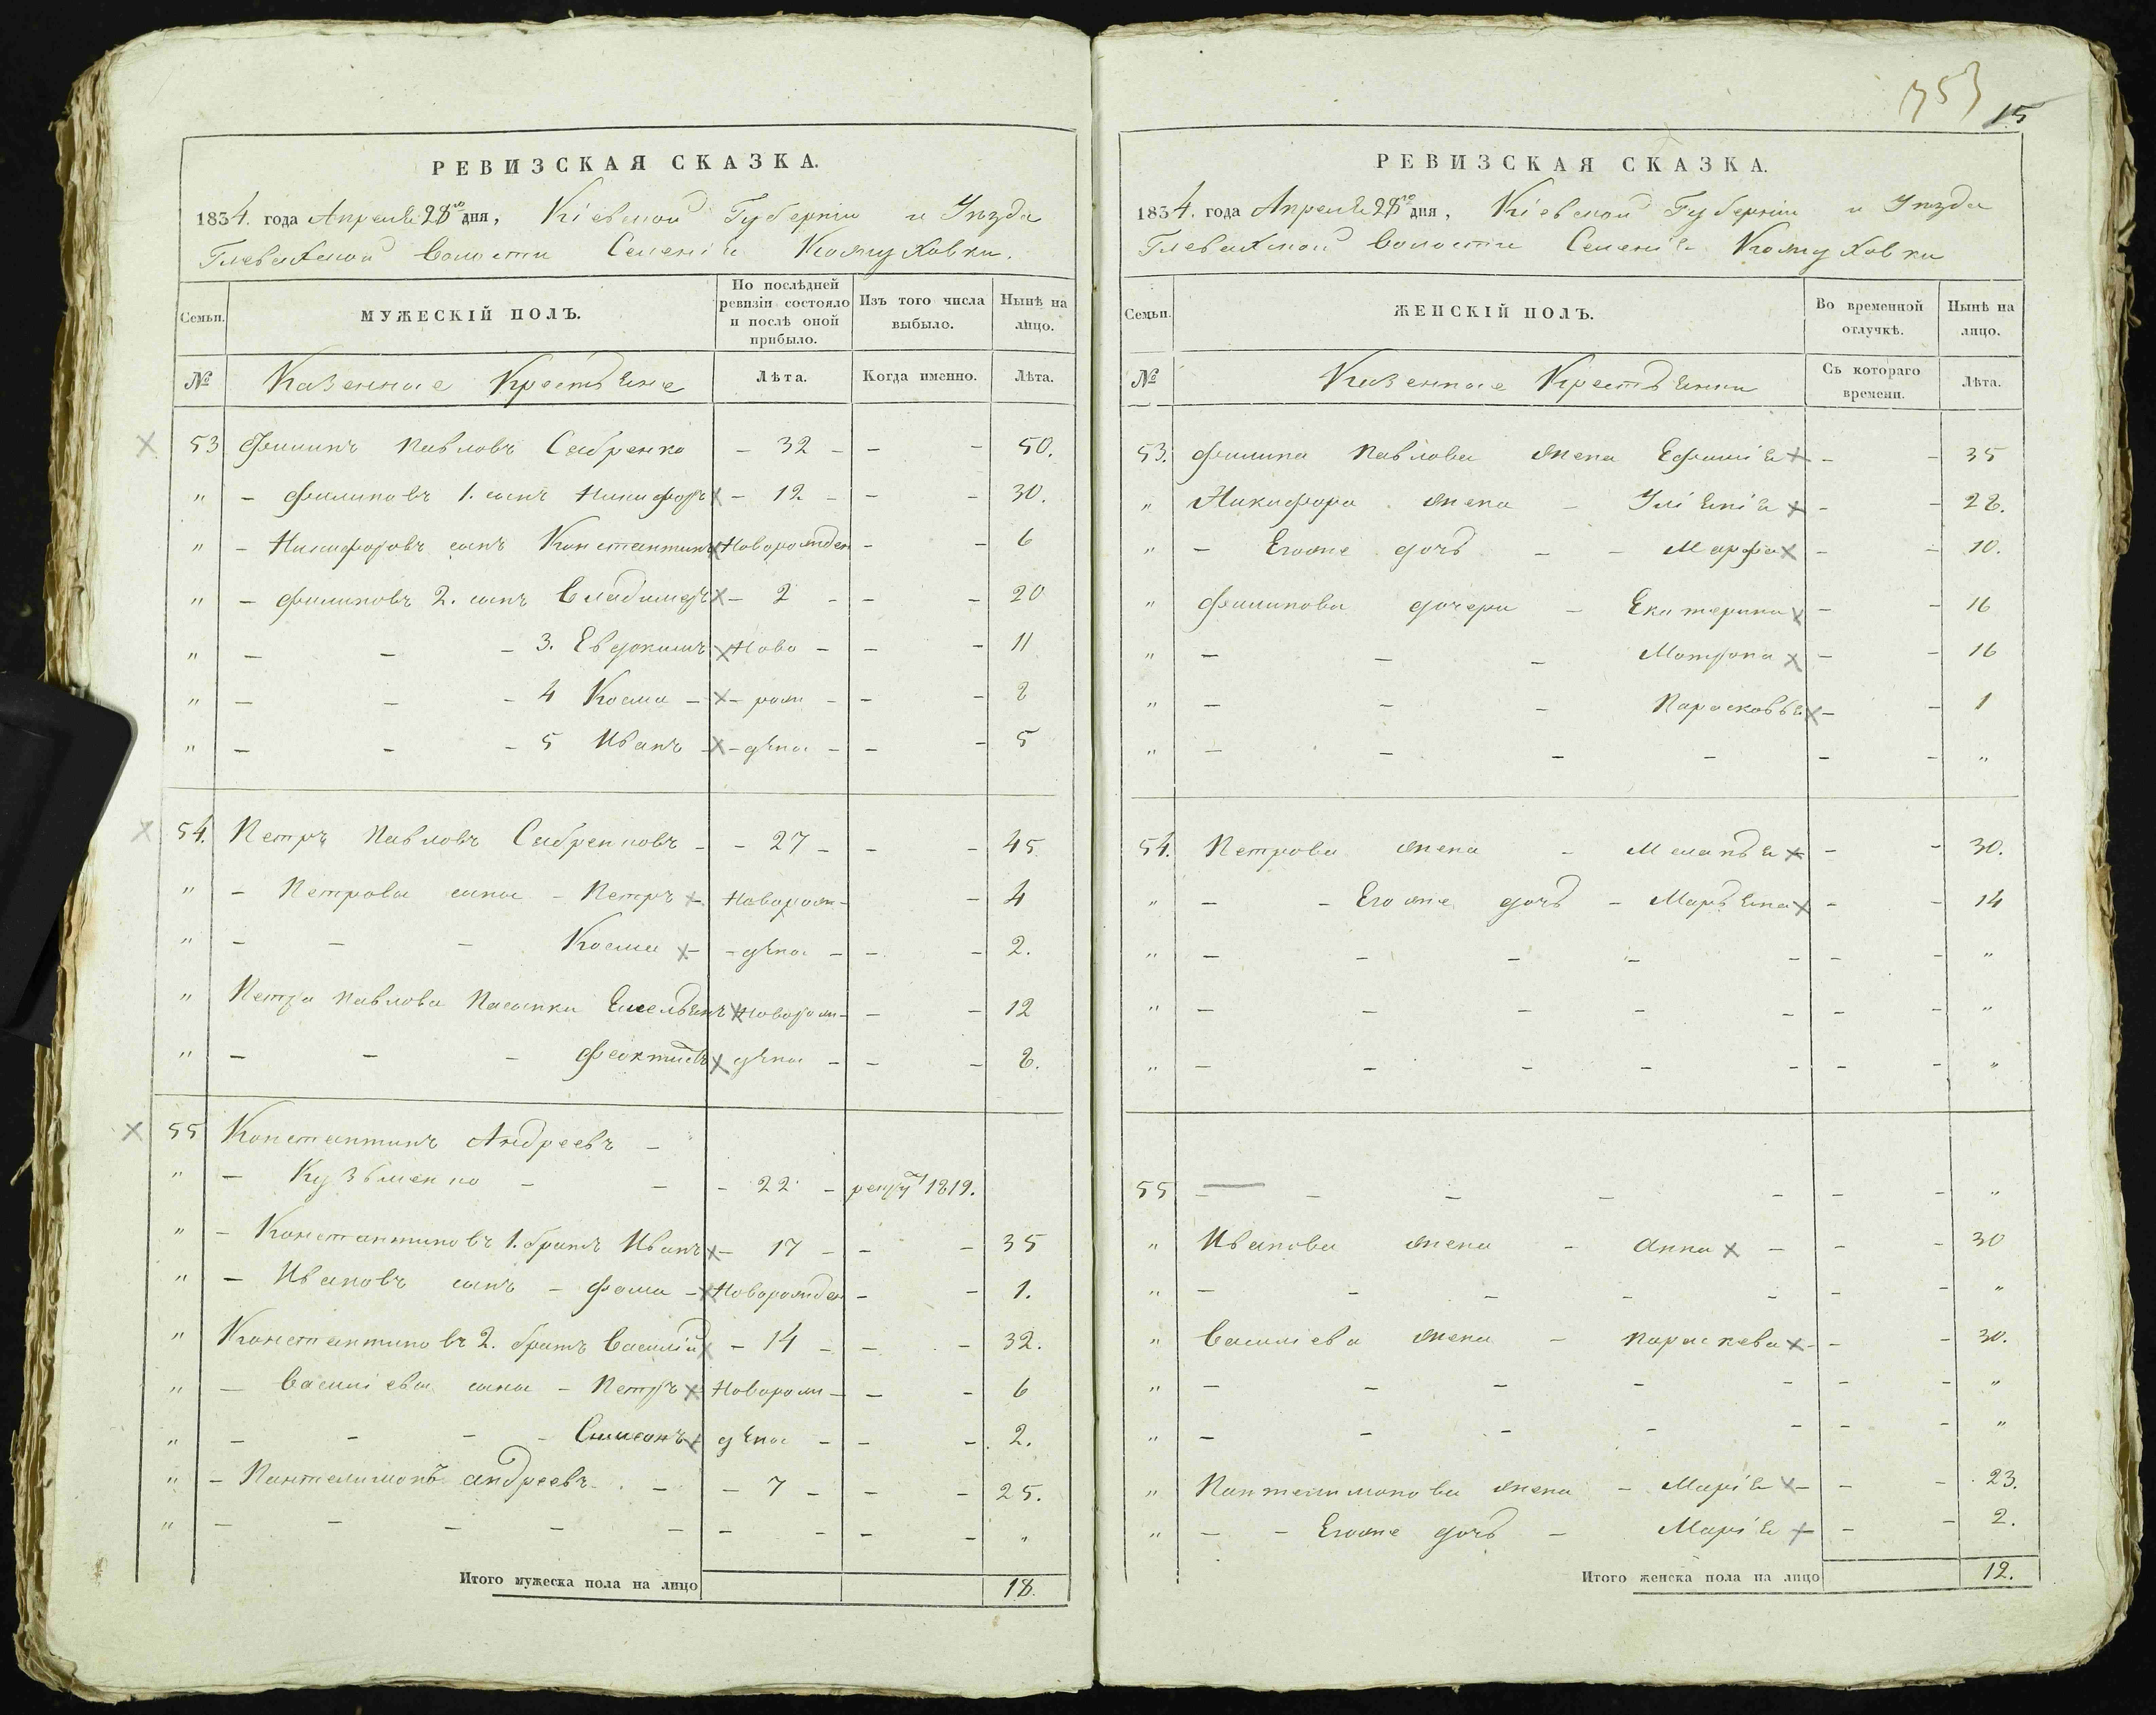 РЕВИЗСКАЯ СКАЗКА.
1834. года Апреля 28го дня, Кіевской Губерніи и Уезда
Глевахской Волости Селенія Кожуховки.
Семьи. МУЖЕСКІЙ ПОЛЪ. По послѣдней ревизіи состояло и послѣ оной прибыло. Изъ того числа выбыло. Нынѣ на лицо.
№ Казенные Крестьяне Лѣта. Когда именно. Лѣта.
53 Филипъ Павловъ Сабренко - 32 - - - 50.
" - Филиповъ 1. сынъ Никифоръ х - 12 - - - 30.
" - Никифоровъ сынъ Константинъ х Новорожден - - 6
" - Филиповъ 2. сынъ Владимеръ х - 2 - - - 20
" - - - 3. Евдокимъ х Ново - - - 11
" - - - 4 Косма - х - рож - - - 8
" - - - 5 Иванъ - х - дены - - - 5
54. Петръ Павловъ Сабренковъ - - 27 - - - 45
" - Петровы сыны - Петръ х Новорож - - 4
" - - - Косма х - дены - - - 2.
" Петра Павлова Пасынки Емельянъ х Новорож - - - 12
" - - - Феоктистъ х дены - - - 8.
55 Константинъ Андреевъ -
" - Кузьменко - - - 22 - рекрут 1819.
" - Константиновъ 1. братъ Иванъ х - 17 - - - 35
" - Ивановъ сынъ - Фома - х Новорожден - - 1.
" Константиновъ 2. братъ Василій х - 14 - - - 32.
" - Василіевы сыны - Петръ х Новорож - - 6
" - - - - Симеонъ х дены - - - 2.
" - Пантелимонъ Андреевъ - - 7 - - - 25.
" - - - - - - - - - "
Итого мужеска пола на лицо 18.
753
15
РЕВИЗСКАЯ СКАЗКА.
1834. года Апреля 28го дня, Кіевской Губерніи и Уезда
Глевахской Волости Селенія Кожуховки
Семьи. ЖЕНСКІЙ ПОЛЪ. Во временной отлучкѣ. Нынѣ на лицо.
№ Казенные Крестьянки Съ котораго времени. Лѣта.
53. Филипа Павлова жена Ефимія х - - 35
" Никифора жена - Уліянія х - - 28.
" - Егоже дочь - - Марфа х - - 10.
" Филипова дочери - Екатерина х - - 16
" - - - Мотрона х - - 16
" - - - Парасковья х - - 1
" - - - - - - "
54. Петрова жена - Меланья х - - 30.
" - - Егоже дочь - Марьяна х - - 14
" - - - - - - - "
" - - - - - - - "
" - - - - - - - "
55 - - - - - - - "
" Иванова жена - Анна х - - - 30
" - - - - - - "
" Василіева жена - Параскева х - - - 30.
" - - - - - - - "
" - - - - - - - "
" Пантелимонова жена - Марія х - - - 23.
" - - Егоже дочь - Марія х - - 2.
Итого женска пола на лицо 12.